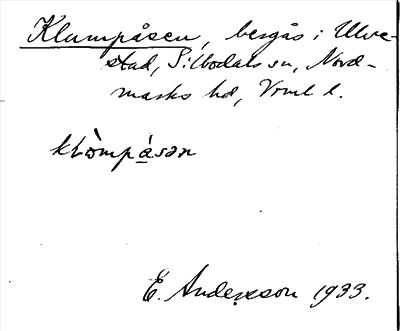 Klumpåsen, bergås i Ulve-
stad, Silbodals sn, Nord-
marks hd, Vrml l.
klòmpásən
E. Andersson 1933.